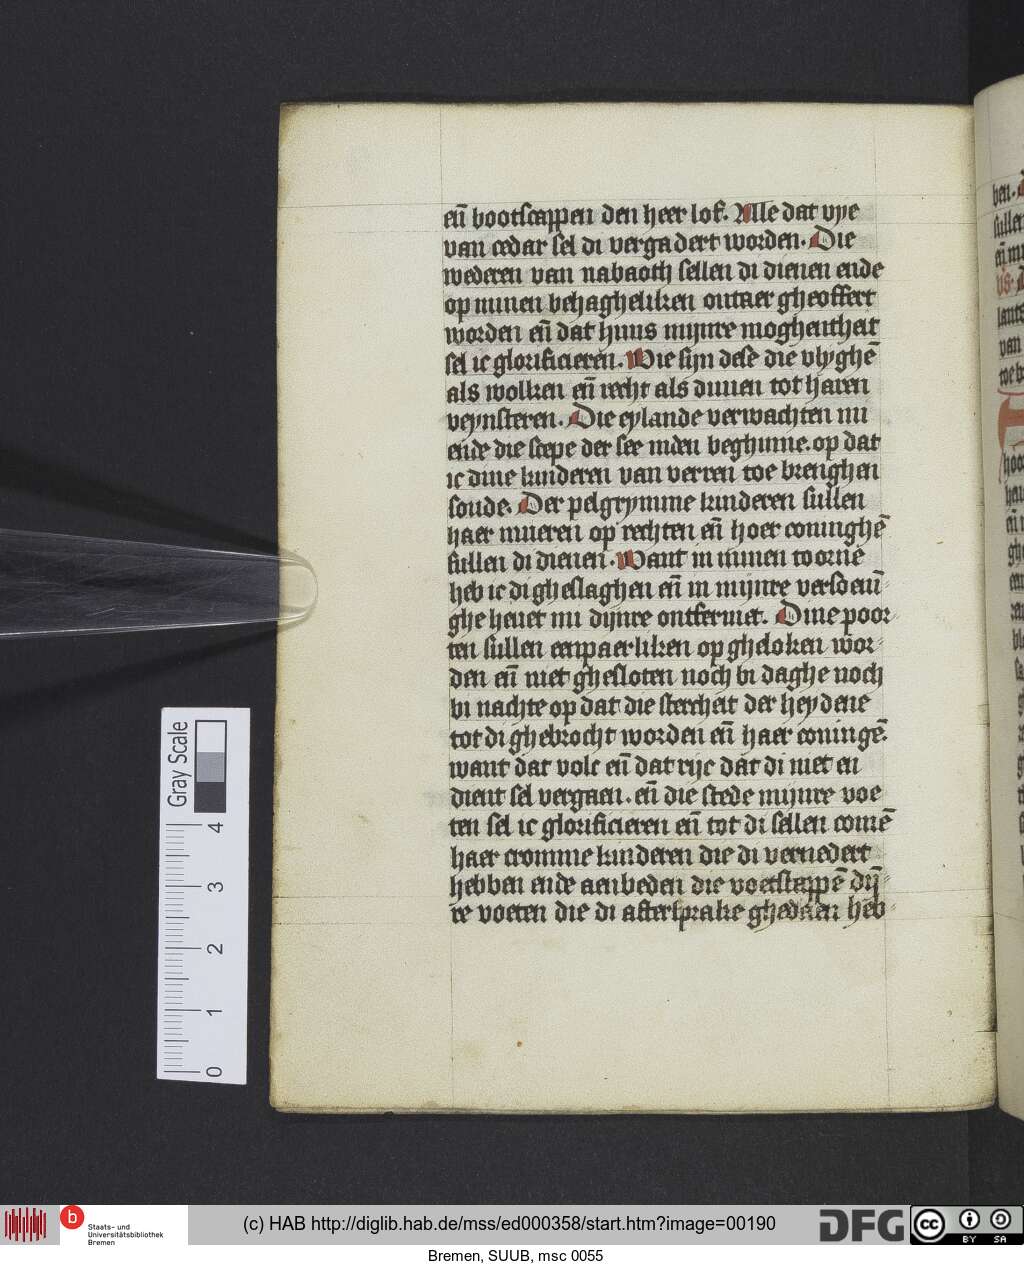 eñ bootscappen den heer lof. Alle dat vye
van cedar sel di verga dert worden. Die
wederen van nabaoth sellen di dienen ende
op minen behagheliken outaer gheoffert
worden eñ dat huus mijnre moghentheit
sel ic glorificieren. Wie sijn dese die vlyghē
als wolken eñ recht als duuen tot haren
veynsteren. Die eylande verwachten mi
ende die scepe der see inden beghinne. op dat
ic dine kinderen van verren toe brenghen
soude. Der pelgrymme kinderen sullen
haer mueren op rechten eñ hoer coninghē
sullen di dienen. Want in minen toorne
heb ic di gheslaghen eñ in mijnre versoenī
ghe heuet mi dijnre ontfermet. Dine poor
ten sullen eenpaerliken op gheloken wor
den eñ niet ghesloten noch bi daghe noch
bi nachte op dat die stercheit der heydene
tot di ghebrocht worden eñ haer coningē.
want dat volc eñ dat ryc dat di niet en
dient sel vergaen. eñ die stede mijnre voe
ten sel ic glorificieren eñ tot di sellen comē
haer cromme kinderen die di vernedert
hebben ende aenbeden die voetstappē dij̄
re voeten die di aftersprake ghedaen heb
Gray Scale
4
3
2
1
0
b
Staats- und
Universitätsbibliothek
Bremen
(c) HAB http://diglib.hab.de/mss/ed000358/start.htm?image=00190
DFG
cc
BY SA
Bremen, SUUB, msc 0055